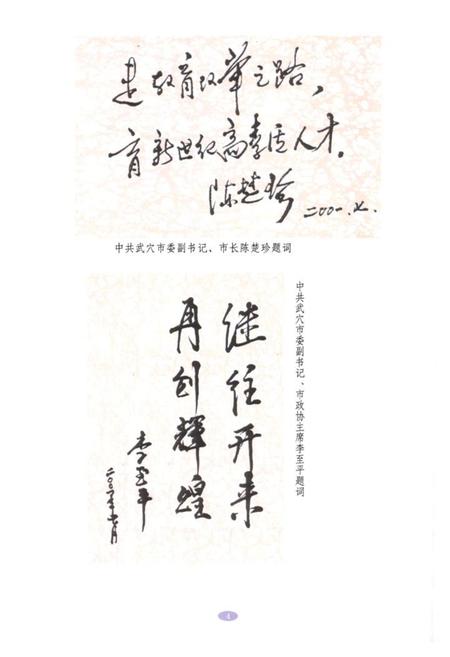 走教育改革之路，
育新世纪高素质人才。
陈楚珍 二〇〇一.七.
中共武穴市委副书记、市长陈楚珍题词
继往开来
再创辉煌
李至平
二〇〇一年七月
中共武穴市委副书记、市政协主席李至平题词
4